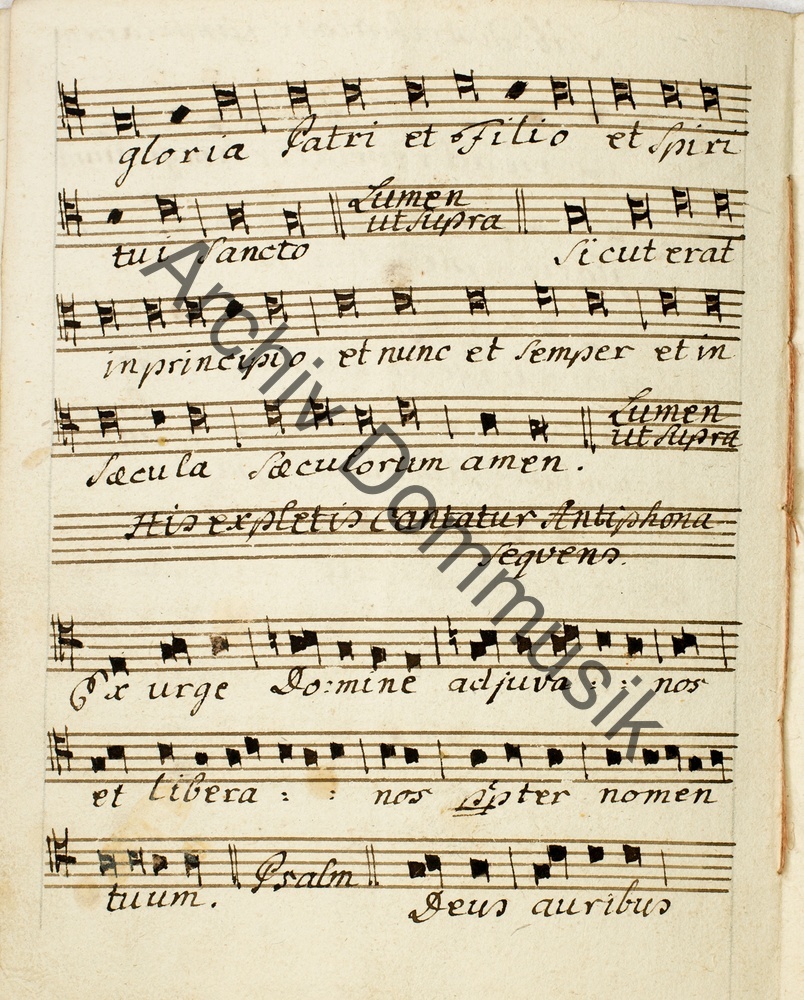 gloria Patri et Filio et Spiri
tui Sancto Lumen
ut Supra
Sicut erat
in principio et nunc et Semper et in
Sæcula Sæculorum amen. Lumen
ut Supra
His expletis Cantatur Antiphona
Sequens.
Ex urge Do:mine adjuva : : nos
et libera : : nos ppter nomen
tuum. Psalm Deus auribus
Archiv Dommusik